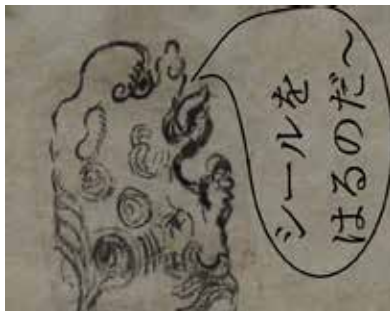 シールを
はるのだ~